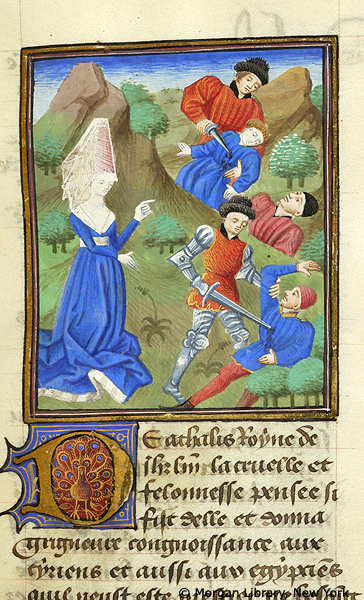 DE athalis Royne de
ihrlm la cruelle et
felonnesse pensee si
fist delle et donna
grigneure congnoissance aux
tyriens et aussi aux egyptiẽs
quil neust este
© Morgan Library, New York